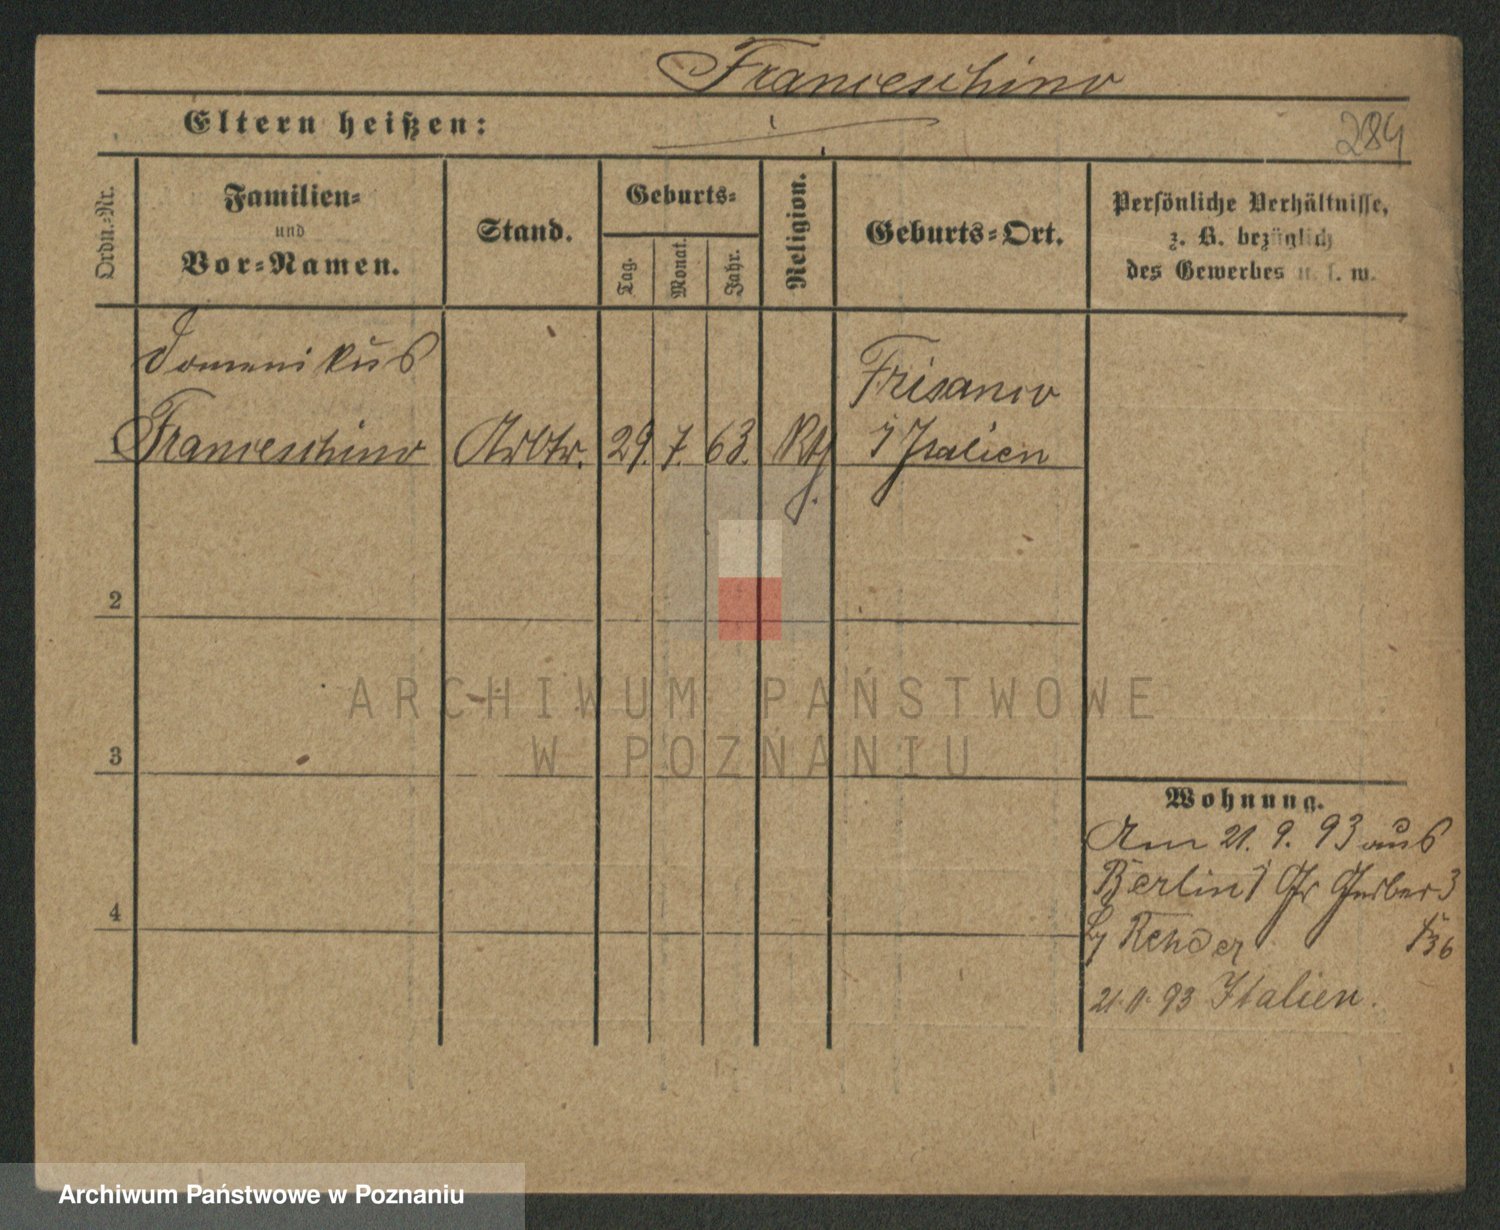 Franceschino
Eltern heißen:
284
Ordn.-Nr.
Familien-
und
Vor-Namen.
Stand.
Geburts-
Tag.
Monat.
Jahr.
Religion.
Geburts-Ort.
Persönliche Verhältnisse,
z. B. bezüglich
des Gewerbes u. s. w.
Domenikus
Franceschino Arbtr. 29. 7. 63. Kth.
Frisanco
i/ Italien
2
3
4
ARCHIWUM PAŃSTWOWE
W POZNANIU
Wohnung.
Am 21. 9. 93 aus
Berlin Gr Gerber 3
Rehder 36
21. 11. 93 Italien.
Archiwum Państwowe w Poznaniu